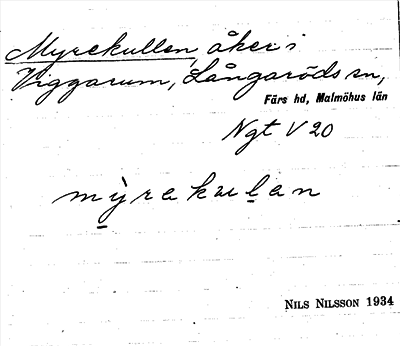 Myrekullen, åker i
Viggarum, Långaröds sn,
Färs hd, Malmöhus län
Ngt V 20
m̲ỳrekul̲an
NILS NILSSON 1934